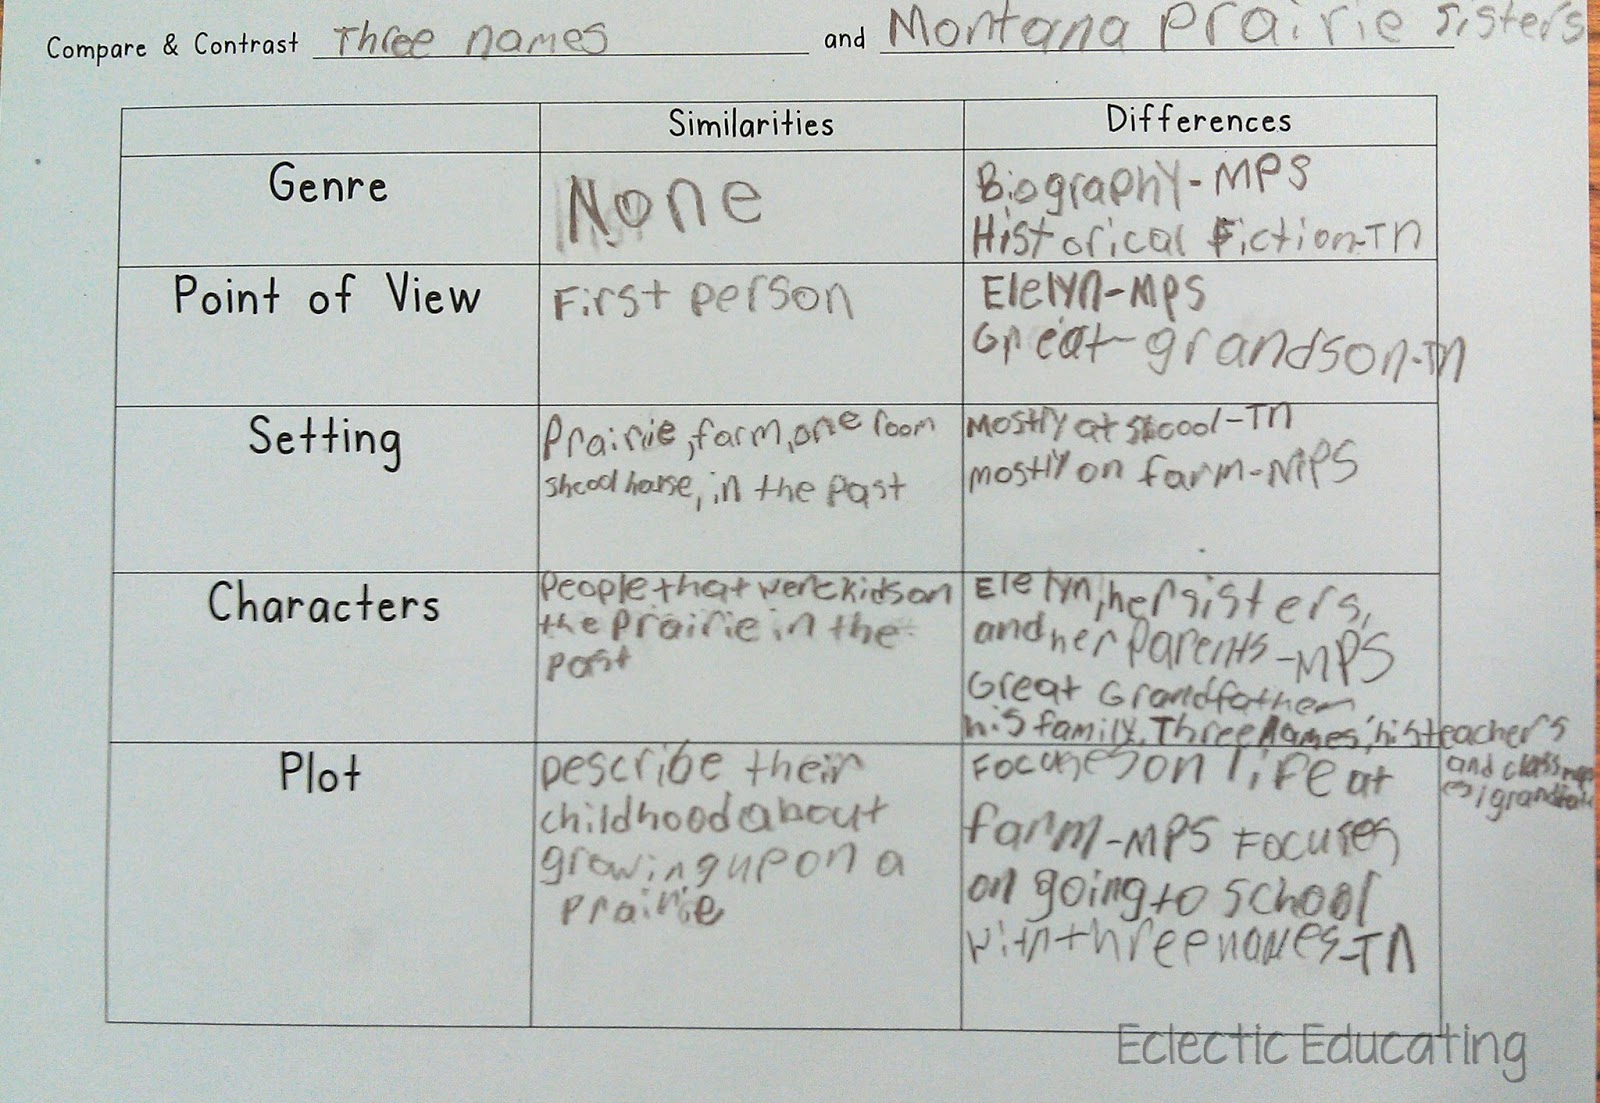 Compare & Contrast Three names and Montana Prairie sisters
Similarities
Differences
Genre
None
Biography-MPS
Historical Fiction-TN
Point of View
First person
Elelyn-MPS
Great-grandson-TN
Setting
Prairie, farm, one room
shcool house, in the Past
Mostly at shcool-TN
mostly on farm-MPS
Characters
People that were kids on
the Prairie in the
past
Elelyn, her sisters,
and her Parents-MPS
Great Grandfather
his family, Three Names, his teacher's
and class
Plot
Describe their
childhood about
growing up on a
Prairie
Focuses on life at
farm-MPS Focuses
on going to school
with three names-TN
Eclectic Educating